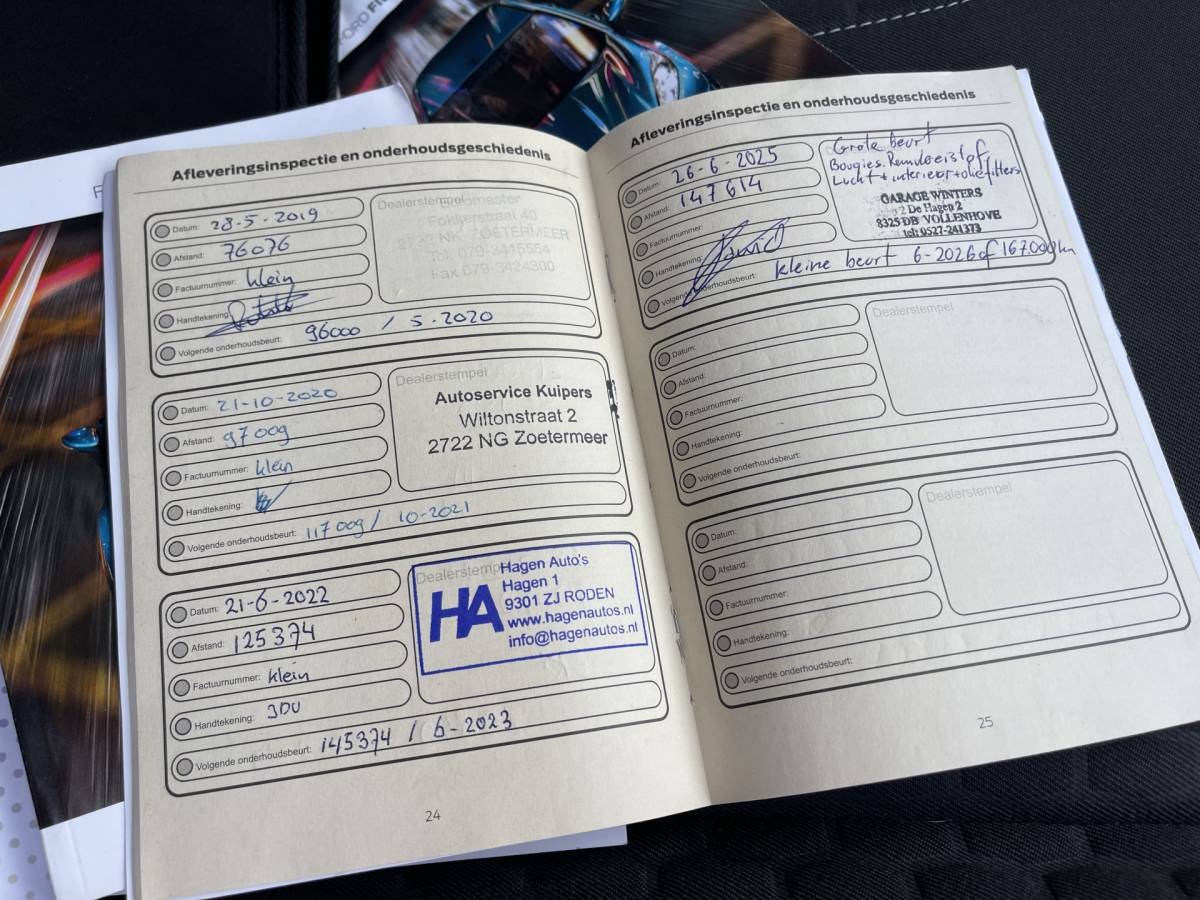 FORD
Afleveringsinspectie en onderhoudsgeschiedenis
Datum: 28-5-2019
Afstand: 76076
Factuurnummer: klein
Handtekening:
Volgende onderhoudsbeurt: 96000 / 5-2020
Dealerstempel
Fokkerstraat 40
ZOETERMEER
Tel. 079-3415554
Fax 079-3424300
Datum: 21-10-2020
Afstand: 97009
Factuurnummer: klein
Handtekening:
Volgende onderhoudsbeurt: 117009 / 10-2021
Dealerstempel
Autoservice Kuipers
Wiltonstraat 2
2722 NG Zoetermeer
Datum: 21-6-2022
Afstand: 125374
Factuurnummer: klein
Handtekening: JDU
Volgende onderhoudsbeurt: 145374 / 6-2023
Dealerstempel
HA
Hagen Auto's
Hagen 1
9301 ZJ RODEN
www.hagenautos.nl
info@hagenautos.nl
24
Afleveringsinspectie en onderhoudsgeschiedenis
Datum: 26-6-2025
Afstand: 147614
Factuurnummer:
Handtekening:
Volgende onderhoudsbeurt: kleine beurt 6-2026 of 167.000km
Grote beurt
Bougies. Remvloeistof
Lucht + interieur + oliefilters
GARAGE WINTERS
2 De Hagen 2
8325 DB VOLLENHOVE
tel: 0527-241373
Datum:
Afstand:
Factuurnummer:
Handtekening:
Volgende onderhoudsbeurt:
Dealerstempel
Datum:
Afstand:
Factuurnummer:
Handtekening:
Volgende onderhoudsbeurt:
Dealerstempel
25